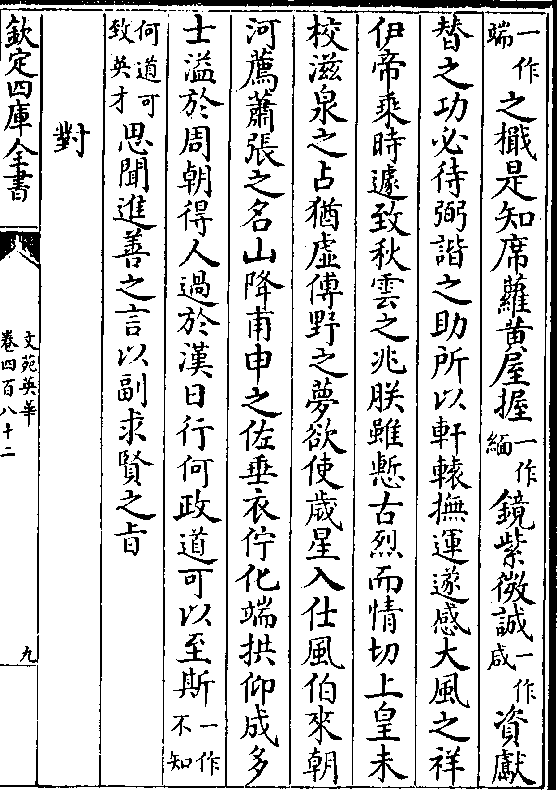 一作端之檝是知席蘿黃屋握一作緬鏡紫微誠一作咸資獻
替之功必待弼諧之助所以軒轅撫運遂感大風之祥
伊帝乘時遽致秋雲之兆朕雖慙古烈而情切上皇未
校滋泉之占猶虛傅野之夢欲使歲星入仕風伯來朝
河薦蕭張之名山降甫申之佐垂衣佇化端拱仰成多
士溢於周朝得人過於漢日行何政道可以至斯一作不知
何道可致英才思聞進善之言以副求賢之旨
對
欽定四庫全書
文苑英華
卷四百八十二
九